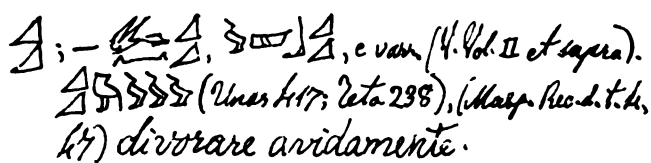 ; — , , e varr. (V. Vol. II et supra).
(Unas 417; Teta 238), (Masp. Rec. d. t. 4,
47) divorare avidamente.